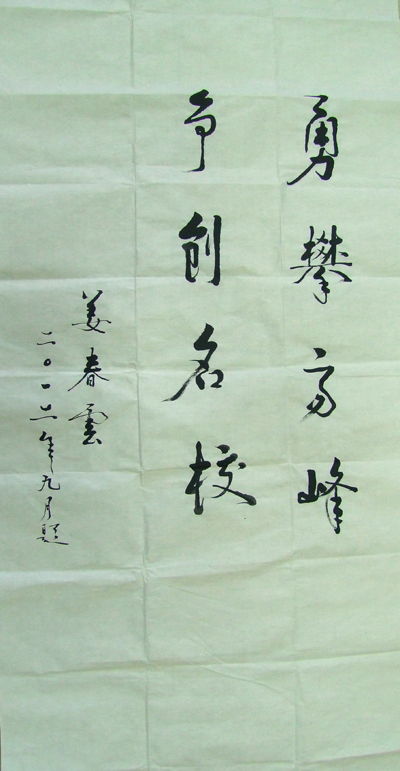 勇攀高峰
争创名校
姜春雲
二〇一二年九月题